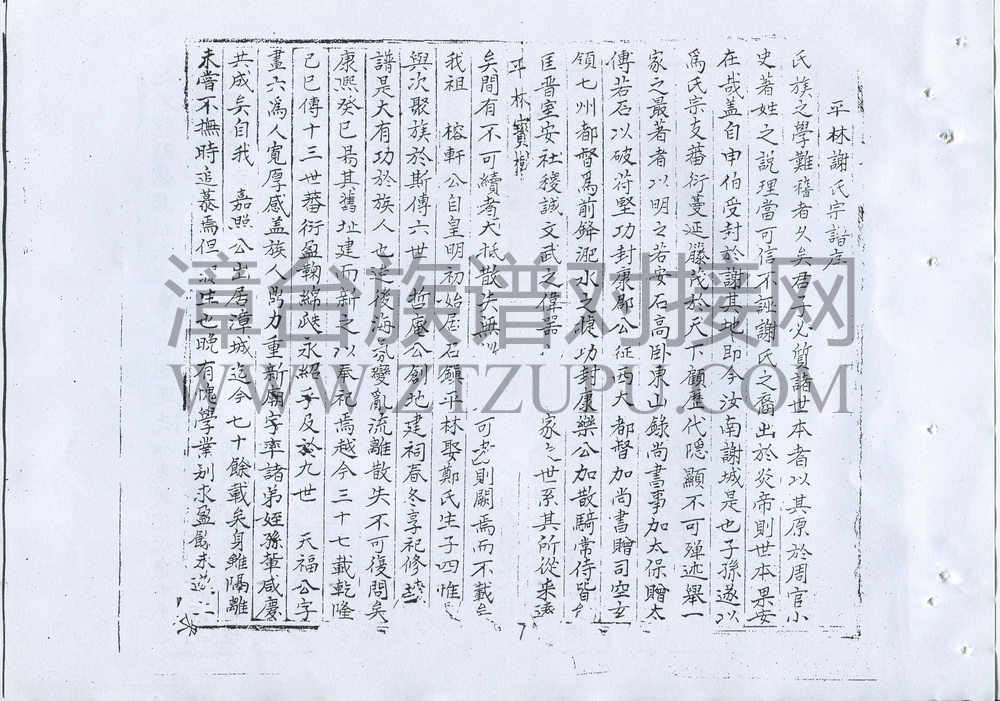 平林謝氏宗譜序
氏族之學難稽者久矣君子必質諸世本者以其原於周官小
史著姓之説理當可信不誣謝氏之裔出於炎帝則世本果安
在哉盖自申伯受封於謝其地即今汝南謝城是也子孫遂以
爲氏宗支蕃衍蔓延籐茂於天下顧歷代隱顯不可殫述舉一
家之最著者以明之若安石高卧東山錄尚書事加太保贈太
傅若石以破苻堅功封康郡公征西大都督加尚書贈司空玄
領七州都督爲前鋒淝水之捷功封康樂公加散騎常侍皆
匡晋室安社稷誠文武之偉器 家之世系其所從来遠
平林寳樹
矣間有不可續者大抵散失無以 可考則闕焉而不載矣
我祖 榕軒公自皇明初始居石鎮平林娶鄭氏生子四惟
與次聚族於斯傳六世 哲處公創地建祠春冬享祀修
譜是大有功於族人也迨後海氛變亂流離散失不可復問矣
康熙癸巳昜其舊址建而新之以奉祀焉越今三十七載乾隆
己巳傳十三世蕃衍盈鞠綿瓞永紹乎及於九世 天福公字
晝六爲人寬厚感盖族人勗力重新廟宇率諸弟姪孫輩咸慶
共成矣自我 嘉照公出居漳城迄今七十餘載矣身雖隔離
未嘗不撫時追慕焉但 生也晚有愧學業别求盈餘未
7
漳台族谱对接网
WWW.ZTZUPU.COM